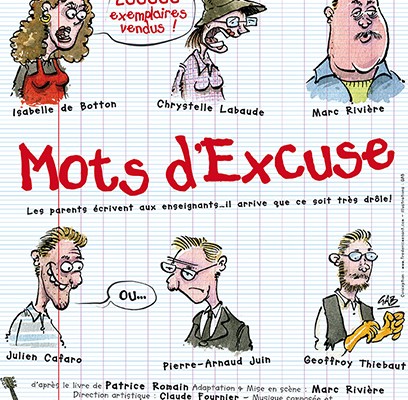 exemplaires
vendus !
Isabelle de Botton
Chrystelle Labaude
Marc Rivière
Mots d'Excuse
Les parents écrivent aux enseignants...il arrive que ce soit très drôle!
OU...
GAB
Julien Cafaro
Pierre-Arnaud Juin
Geoffroy Thiebaut
d'après le livre de Patrice Romain Adaptation & Mise en scène : Marc Rivière
Direction artistique : Claude Fournier - Musique composée et